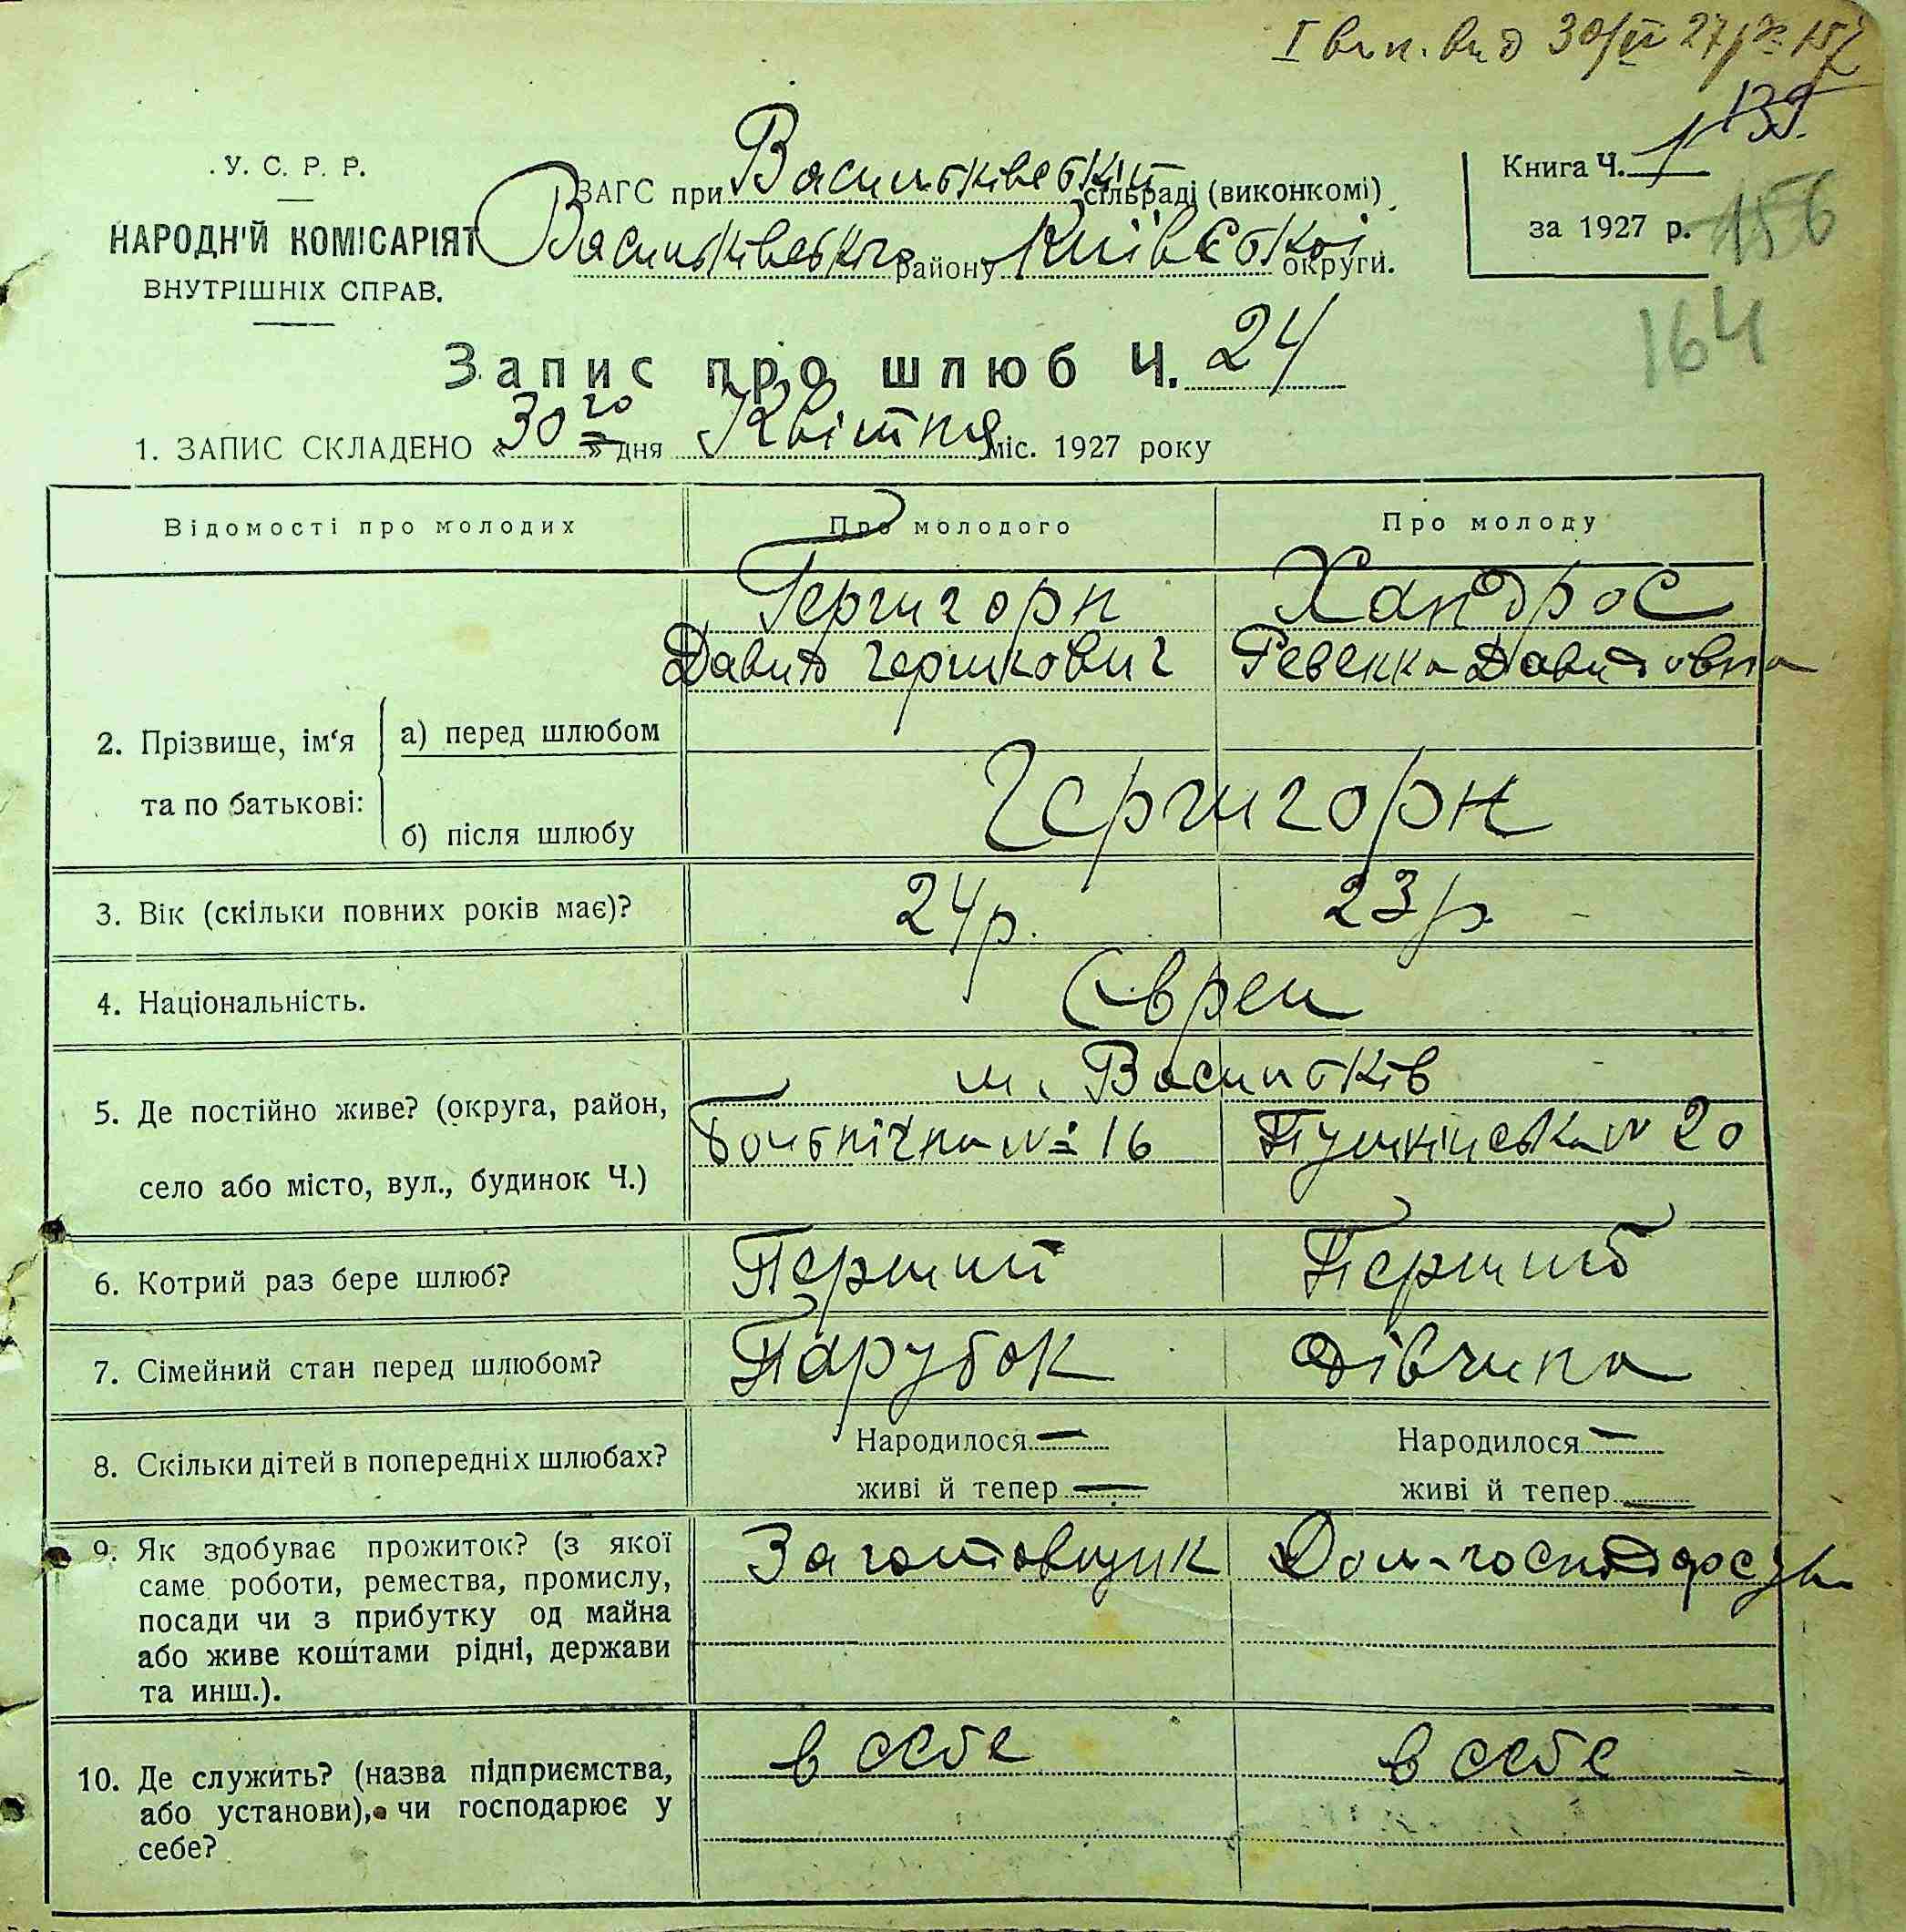 І вип. від 30/IV 27р № 157
139.
У. С. Р. Р.
НАРОДН'Й КОМІСАРІЯТ
ВНУТРІШНІХ СПРАВ.
ЗАГС при Васильківській сільраді (виконкомі)
Васильківського району Київської округи.
Книга Ч. 1
за 1927 р.
156
164
Запис про шлюб Ч. 24
1. ЗАПИС СКЛАДЕНО « 30го » дня Квітня міс. 1927 року
Відомості про молодих Про молодого Про молоду
Гершгорн Хандрос
Давид Гершкович Ревекка Давидовна
2. Прізвище, ім‘я та по батькові:
а) перед шлюбом
б) після шлюбу
Гершгорн
3. Вік (скільки повних років має)? 24 р. 23 р.
4. Національність. Євреи
5. Де постійно живе? (округа, район,
село або місто, вул., будинок Ч.)
м. Васильків
№ 16 Пушкінська № 20
6. Котрий раз бере шлюб? Перший Перший
7. Сімейний стан перед шлюбом? Парубок Дівчина
8. Скільки дітей в попередніх шлюбах?
Народилося — Народилося —
живі й тепер — живі й тепер —
9. Як здобуває прожиток? (з якої
саме роботи, ремества, промислу,
посади чи з прибутку од майна
або живе коштами рідні, держави
та инш.).
Заготовщик Дом-господарська
10. Де служить? (назва підприємства,
або установи), чи господарює у
себе?
в себе в себе